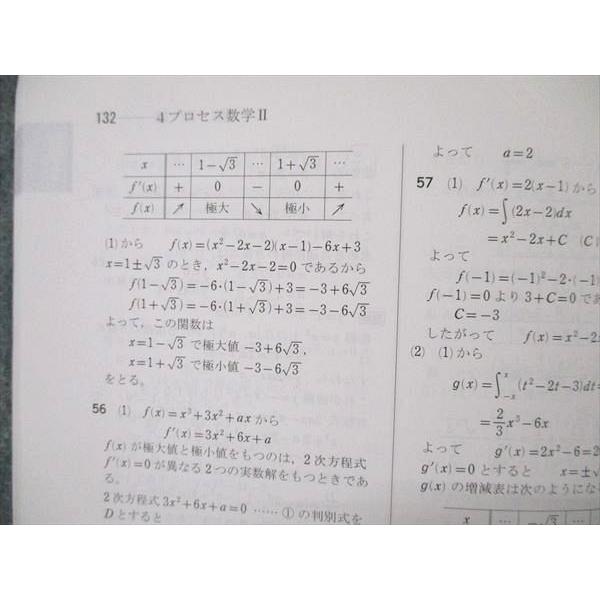 132 4プロセス数学II
x … 1−√3 … 1+√3 …
f′(x) + 0 − 0 +
f(x) ↗ 極大 ↘ 極小 ↗
(1)から f(x)=(x²−2x−2)(x−1)−6x+3
x=1±√3 のとき，x²−2x−2=0 であるから
f(1−√3)=−6·(1−√3)+3=−3+6√3
f(1+√3)=−6·(1+√3)+3=−3−6√3
よって，この関数は
x=1−√3 で極大値 −3+6√3，
x=1+√3 で極小値 −3−6√3
をとる。
56 (1) f(x)=x³+3x²+ax から
f′(x)=3x²+6x+a
f(x) が極大値と極小値をもつのは，2次方程式
f′(x)=0 が異なる2つの実数解をもつときであ
る。
2次方程式 3x²+6x+a=0 …… ① の判別式を
Dとすると
よって a=2
57 (1) f′(x)=2(x−1) から
f(x)=∫(2x−2)dx
=x²−2x+C (C
よって
f(−1)=(−1)²−2·(−1)
f(−1)=0 より 3+C=0 で
C=−3
したがって f(x)=x²−2
(2) (1)から
g(x)=∫₋ₓˣ(t²−2t−3)dt=
=2/3x³−6x
よって g′(x)=2x²−6=2
g′(x)=0 とすると x=±√
g(x) の増減表は次のようにな
x … −√3 …